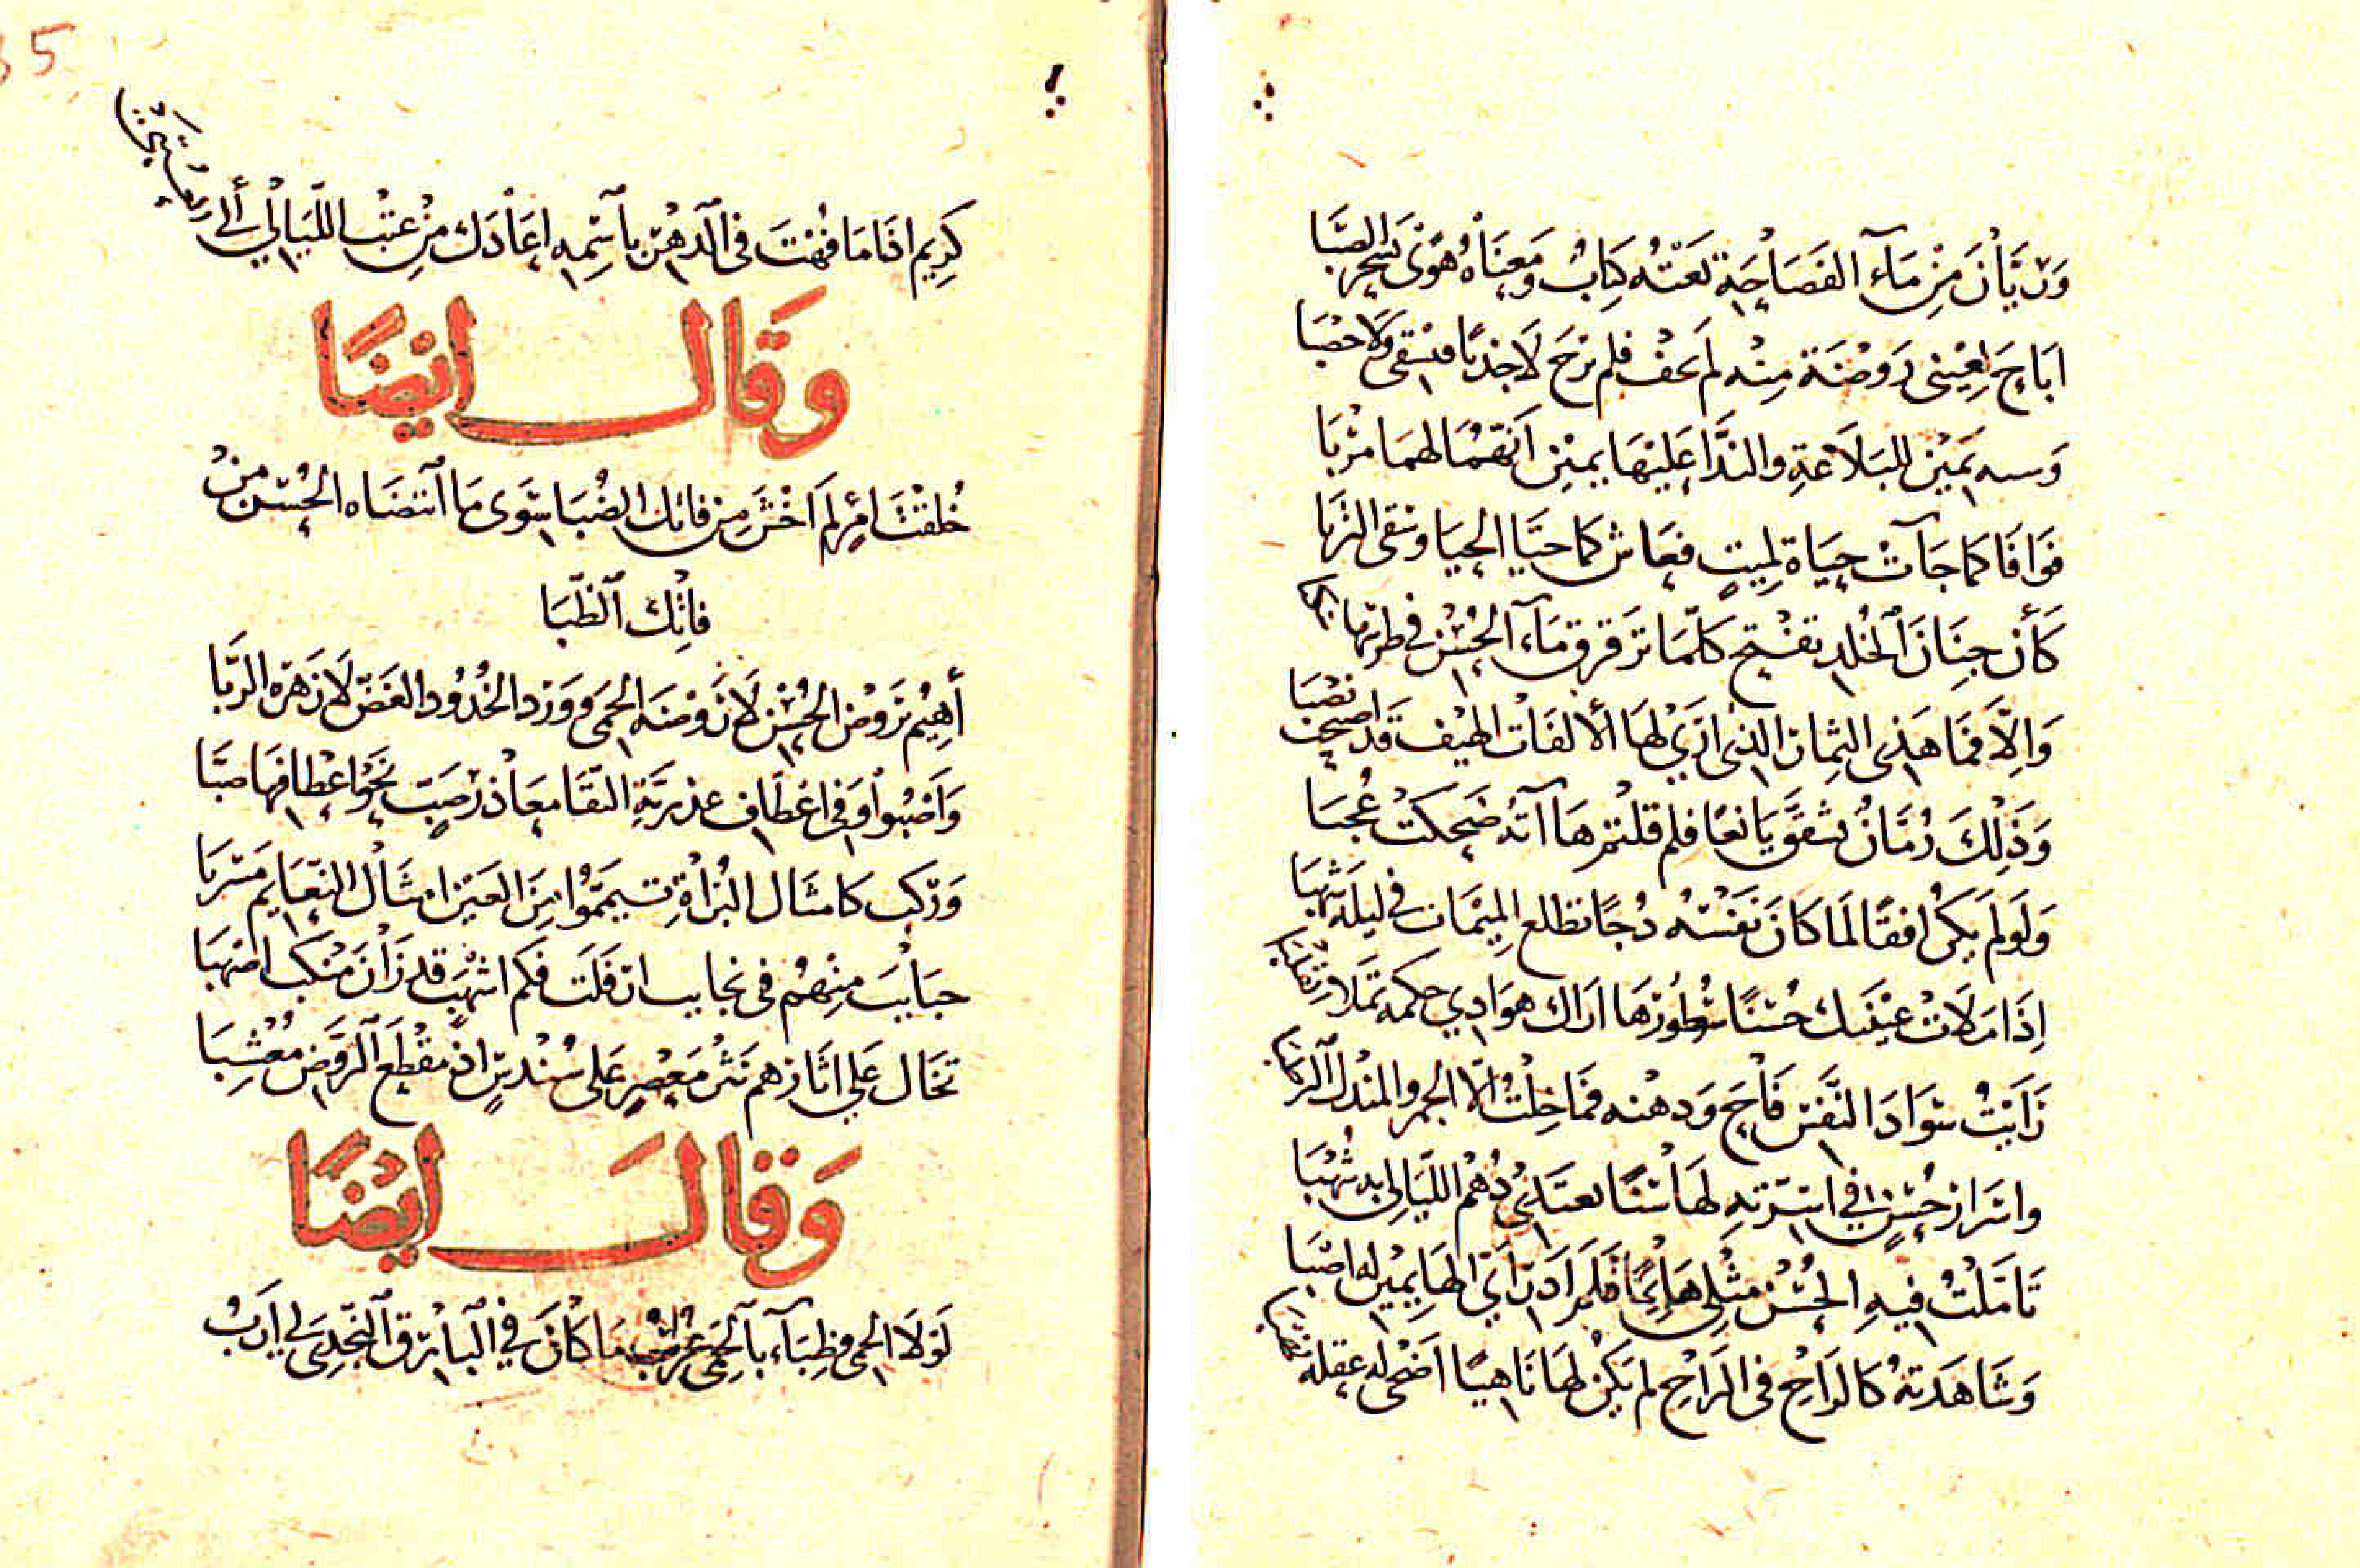 وريان من ماء الفصاحة لعته كتاب ومعناه هوى يسحر الصبا
اباح لعيني روضة منه لم تخف فلم ترج لا جدبا فيسقى ولا خصبا
وسه يمين للبلاغة والندا عليها يمين انهما لهما تربا
فوافا كما جآت حياة لميت فعاش كما حيا الحيا وسقى التربا
كأن جنان الخلد تفتح كلما ترقرق ماء الحسن في طرتها
والا فما هذى الثمار الذى ارى لها ألالفات الهيف قد اصبحت نصبا
وذلك رمان تشقق يانعا فلم قلتم ها انه ضحكت عجبا
ولو لم يكن افقا لما كان نفسه دجا تطلع الميمات في ليلة شهبا
إذا ملات عينيك حسنا سطورها اراك هوادي حكمة تملا
رايت سواد النفس فاح ودهنه فما خلت الا الجمر والمندل الرطبا
واسرار حسن في اسرته لها سنا تعتدي دهم الليالى به شهبا
تاملت فيه الحسن مثلى هائما فلم ار ادرى اي الهايمين له اصبا
وشاهدته كالراح في الراح لم يكن لها ناهيا اضحى له عقله
35
كريم اذا ما فهت في الدهر باسمه اعادك من عتب الليالي ألى
وقال ايضا
خلقت امرء لم اخش من فاتك الضبا سوى ما انتضاه الحسن من
فاتك الظبا
أهيم بروض الحسن لا روضه الحمى وورد الخدود الغض لا زهره الربا
واصبوا وفي اعطاف عذرية النقا معاذر صب نحو اعطافها صبا
وركب كامثال البزاة تيمموا من العين امثال النعايم سربا
حبايب منهم في نجايب ارفلت فكم اشهب قد زان منكب اصهبا
تخال على اثارهم نثر معصر على سندس اذ مقطع الروض معشبا
وقال ايضا
لولا الحمى وظباء بالحمى عرب ما كان في البارق النجدى لي ارب